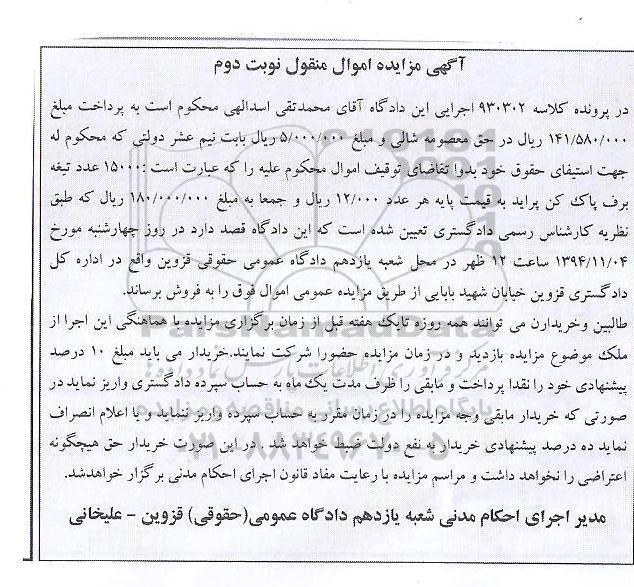 آگهی مزایده اموال منقول نوبت دوم
در پرونده کلاسه ۹۳۰۳۰۲ اجرایی این دادگاه آقای محمدتقی اسدالهی محکوم است به پرداخت مبلغ
۱۴۱/۵۸۰/۰۰۰ ریال در حق معصومه شالی و مبلغ ۵/۰۰۰/۰۰۰ ریال بابت نیم عشر دولتی که محکوم له
جهت استیفای حقوق خود بدوا تقاضای توقیف اموال محکوم علیه را که عبارت است :۱۵۰۰۰ عدد تیغه
برف پاک کن پراید به قیمت پایه هر عدد ۱۲/۰۰۰ ریال و جمعا به مبلغ ۱۸۰/۰۰۰/۰۰۰ ریال که طبق
نظریه کارشناس رسمی دادگستری تعیین شده است که این دادگاه قصد دارد در روز چهارشنبه مورخ
۱۳۹۴/۱۱/۰۴ ساعت ۱۲ ظهر در محل شعبه یازدهم دادگاه عمومی حقوقی قزوین واقع در اداره کل
دادگستری قزوین خیابان شهید بابایی از طریق مزایده عمومی اموال فوق را به فروش برساند.
طالبین وخریدارن می توانند همه روزه تایک هفته قبل از زمان برگزاری مزایده با هماهنگی این اجرا از
ملک موضوع مزایده بازدید و در زمان مزایده حضورا شرکت نمایند.خریدار می باید مبلغ ۱۰ درصد
پیشنهادی خود را نقدا پرداخت و مابقی را ظرف مدت یک ماه به حساب سپرده دادگستری واریز نماید در
صورتی که خریدار مابقی وجه مزایده را در زمان مقرر به حساب سپرده واریز ننماید و یا اعلام انصراف
نماید ده درصد پیشنهادی خریدار به نفع دولت ضبط خواهد شد . در این صورت خریدار حق هیچگونه
اعتراضی را نخواهد داشت و مراسم مزایده با رعایت مفاد قانون اجرای احکام مدنی برگزار خواهدشد.
مدیر اجرای احکام مدنی شعبه یازدهم دادگاه عمومی(حقوقی) قزوین - علیخانی
ParsNamadData